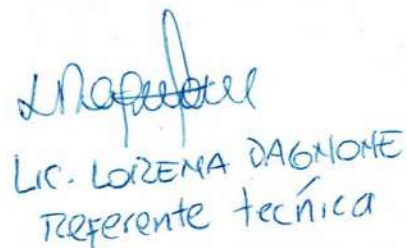 LIC. LORENA DAGNONE
Referente técnica